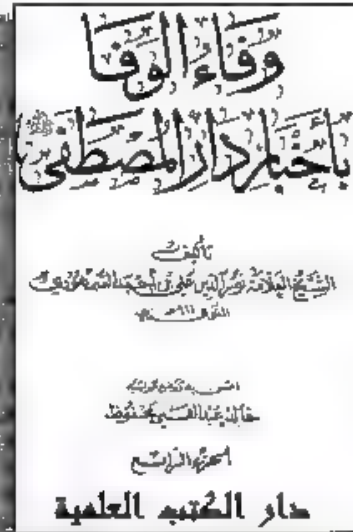 وفاء الوفا
بأخبار دار المصطفى ﷺ
تأليف
الشيخ العلامة نور الدين علي بن أحمد السمهودي
المتوفى ٩١١ هـ
اعتنى به
خالد عبد الغني محفوظ
الجزء الرابع
دار الكتب العلمية